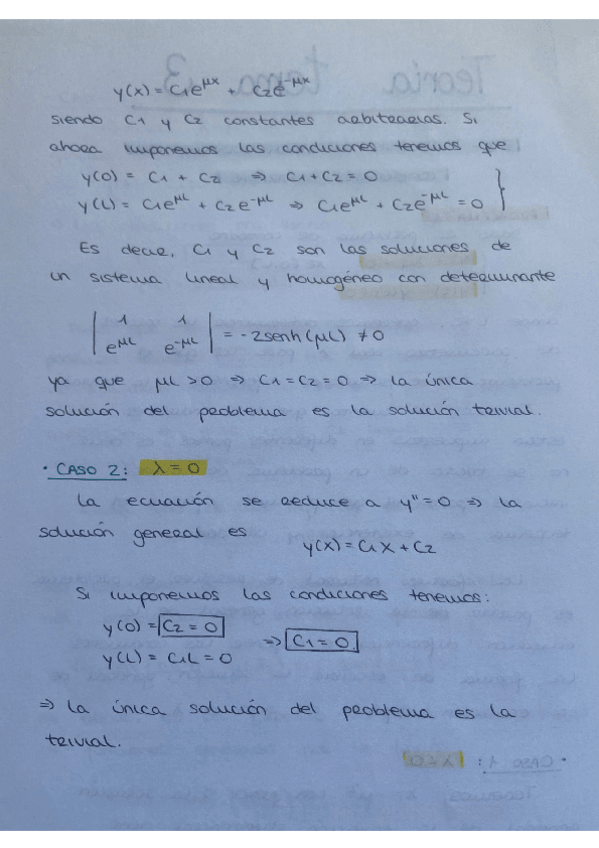 y(x) = C1e^μx + C2e^-μx
siendo C1 y C2 constantes arbitrarias. Si
ahora imponemos las condiciones tenemos que
y(0) = C1 + C2 ⇒ C1+C2 = 0
y(L) = C1e^μL + C2e^-μL ⇒ C1e^μL + C2e^-μL = 0 }
Es decir, C1 y C2 son las soluciones de
un sistema lineal y homogéneo con determinante
| 1 1 |
| e^μL e^-μL | = -2senh(μL) ≠ 0
ya que μL > 0 ⇒ C1 = C2 = 0 ⇒ la única
solución del problema es la solución trivial.
· CASO 2: λ = 0
La ecuación se reduce a y'' = 0 ⇒ la
solución general es
y(x) = C1x + C2
Si imponemos las condiciones tenemos:
y(0) = C2 = 0
⇒ C1 = 0
y(L) = C1L = 0
⇒ la única solución del problema es la
trivial.